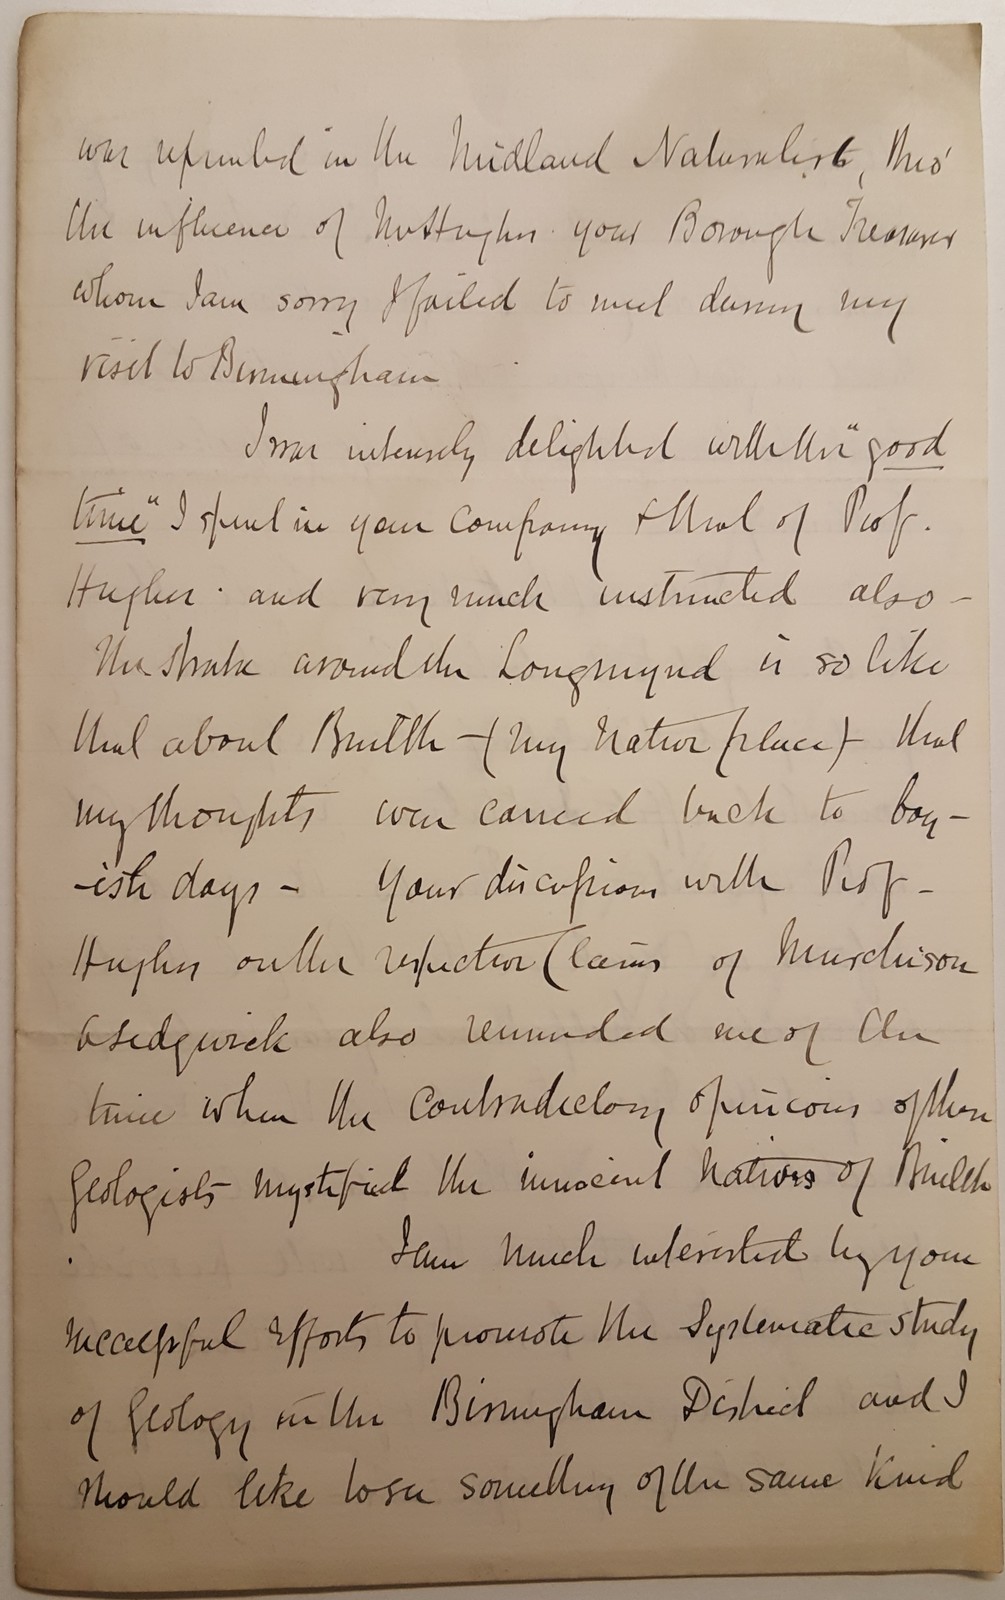 was reprinted in the Midland Naturalist, thro'
the influence of Mr Hughes your Borough Treasurer
whom I am sorry I failed to meet during my
visit to Birmingham
I was intensely delighted with the "good
time" I spent in your company & that of Prof.
Hughes. and very much instructed also -
The strata around the Longmynd is so like
that about Builth - (my native place) - that
my thoughts were carried back to boy-
-ish days - Your discussions with Prof -
Hughes on the respective Claims of Murchison
& Sedgwick also reminded me of the
time when the contradictory opinions of these
Geologists mystified the innocent natives of Builth
I am much interested by your
successful efforts to promote the Systematic study
of Geology in the Birmingham District and I
should like to see something of the same kind